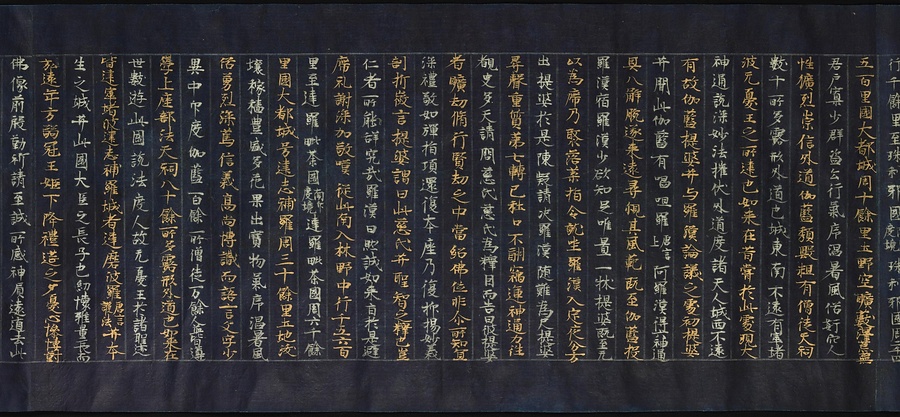 行千餘里至珠利耶國南印度境珠利耶國周二千四
五百里國大都城周十餘里土野空曠藪澤荒蕪
居戶寡少群盜公行氣序溫暑風俗奸宄人
性獷烈崇信外道伽藍頹毀粗有僧徒天祠
數十所多露形外道也城東南不遠有窣堵
波无憂王之所建也如來在昔嘗於此處現大
神通說深妙法摧伏外道度諸天人城西不遠
有故伽藍提婆𦬇与羅漢論議之處初提婆
𦬇聞此伽藍有嗢呾羅唐言上阿羅漢得六神通
具八解脫遂來遠尋觀其風範既至伽藍投
羅漢宿羅漢少欲知足唯置一牀提婆既至无
以為席乃聚落葉指令就坐羅漢入定夜分方
出提婆於是陳疑請決羅漢隨難為尺提婆
尋聲重質第七轉已杜口不酬竊運神通力往
覩史多天請問慈氏慈氏為釋因而告曰彼提婆
者曠劫修行賢劫之中當紹佛位非尒所知宜
深禮敬如彈指頃還復本座乃復抑揚妙義
剖析微言提婆謂曰此慈氏𦬇聖智之釋也豈
仁者所能詳究哉羅漢曰然誠如來旨於是避
席礼謝深加敬歎從此南入林野中行千五六百
里至達羅毗荼國南印度境達羅毗荼國周六千餘
里國大都城号建志補羅周三十餘里土地沃
壤稼穡豐盛多花果出寶物氣序溫暑風
俗勇烈深篤信義高尚博識而語言文字少
異中印度伽藍百餘所僧徒万餘人皆遵
學上座部法天祠八十餘所多露形外道也如來在
世數遊此國說法度人故无憂王於諸聖迹
皆建窣堵波建志補羅城者達磨波羅唐言護法𦬇本
生之城𦬇此國大臣之長子也幼懷雅量長而
弘遠年方弱冠王姬下降禮莚之夕憂心慘悽對
佛像前殷勤祈請至誠所感神負遠遁去此